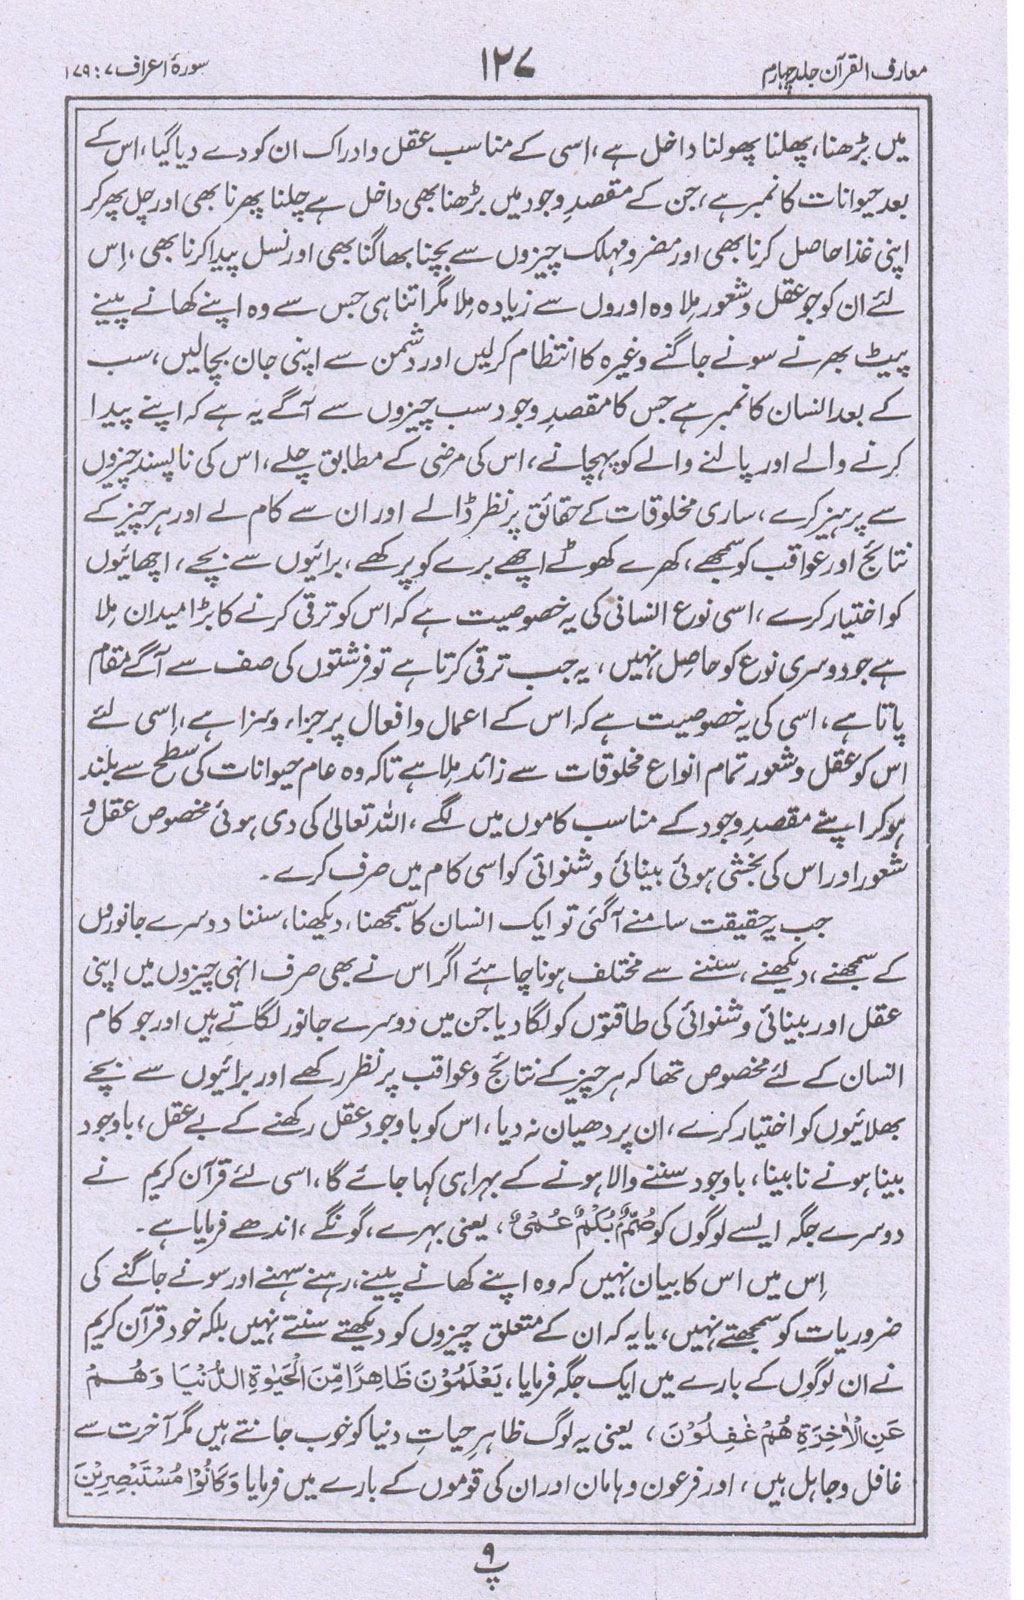 معارف القرآن جلد چہارم
۱۲۷
سورۂ اعراف ۷ : ۱۷۹
میں بڑھنا، پھلنا پھولنا داخل ہے، اسی کے مناسب عقل و ادراک ان کو دے دیا گیا، اس کے
بعد حیوانات کا نمبر ہے، جن کے مقصدِ وجود میں بڑھنا بھی داخل ہے چلنا پھرنا بھی اور چل پھر کر
اپنی غذا حاصل کرنا بھی اور مضر و مہلک چیزوں سے بچنا بھاگنا بھی اور نسل پیدا کرنا بھی، اِس
لئے ان کو جو عقل و شعور مِلا وہ اوروں سے زیادہ مِلا مگر اتنا ہی جس سے وہ اپنے کھانے پینے
پیٹ بھرنے سونے جاگنے وغیرہ کا انتظام کرلیں اور دشمن سے اپنی جان بچالیں، سب
کے بعد انسان کا نمبر ہے جس کا مقصدِ وجود سب چیزوں سے آگے یہ ہے کہ اپنے پیدا
کرنے والے اور پالنے والے کو پہچانے، اس کی مرضی کے مطابق چلے، اس کی ناپسند چیزوں
سے پرہیز کرے، ساری مخلوقات کے حقائق پر نظر ڈالے اور ان سے کام لے اور ہر چیز کے
نتائج اور عواقب کو سمجھے، کھرے کھوٹے اچھے برے کو پرکھے، برائیوں سے بچے، اچھائیوں
کو اختیار کرے، اسی نوع انسانی کی یہ خصوصیت ہے کہ اس کو ترقی کرنے کا بڑا میدان مِلا
ہے جو دوسری نوع کو حاصل نہیں، یہ جب ترقی کرتا ہے تو فرشتوں کی صف سے آگے مقام
پاتا ہے، اسی کی یہ خصوصیت ہے کہ اس کے اعمال و افعال پر جزاء و سزا ہے، اِسی لئے
اس کو عقل و شعور تمام انواع مخلوقات سے زائد مِلا ہے تاکہ وہ عام حیوانات کی سطح سے بلند
ہو کر اپنے مقصدِ وجود کے مناسب کاموں میں لگے، اللہ تعالیٰ کی دی ہوئی مخصوص عقل و
شعور اور اس کی بخشی ہوئی بینائی و شنوائی کو اسی کام میں صرف کرے۔
جب یہ حقیقت سامنے آگئی تو ایک انسان کا سمجھنا، دیکھنا، سننا دوسرے جانوروں
کے سمجھنے، دیکھنے، سننے سے مختلف ہونا چاہئے اگر اس نے بھی صرف انہی چیزوں میں اپنی
عقل اور بینائی و شنوائی کی طاقتوں کو لگا دیا جن میں دوسرے جانور لگاتے ہیں اور جو کام
انسان کے لئے مخصوص تھا کہ ہر چیز کے نتائج و عواقب پر نظر رکھے اور برائیوں سے بچے
بھلائیوں کو اختیار کرے، ان پر دھیان نہ دیا، اس کو باوجود عقل رکھنے کے بے عقل، باوجود
بینا ہونے نابینا، باوجود سننے والا ہونے کے بہرا ہی کہا جائے گا، اسی لئے قرآن کریم نے
دوسرے جگہ ایسے لوگوں کو صُمٌّۢ بُكْمٌ عُمْیٌ، یعنی بہرے، گونگے، اندھے فرمایا ہے۔
اِس میں اس کا بیان نہیں کہ وہ اپنے کھانے پینے، رہنے سہنے اور سونے جاگنے کی
ضروریات کو سمجھتے نہیں، یا یہ کہ ان کے متعلق چیزوں کو دیکھتے سنتے نہیں بلکہ خود قرآن کریم
نے ان لوگوں کے بارے میں ایک جگہ فرمایا، یَعْلَمُوْنَ ظَاهِرًا مِّنَ الْحَیٰوةِ الدُّنْیَا وَهُمْ
عَنِ الْاٰخِرَةِ هُمْ غٰفِلُوْنَ، یعنی یہ لوگ ظاہرِ حیاتِ دنیا کو خوب جانتے ہیں مگر آخرت سے
غافل و جاہل ہیں، اور فرعون و ہامان اور ان کی قوموں کے بارے میں فرمایا وَ كَانُوْا مُسْتَبْصِرِیْنَ
۹
پ